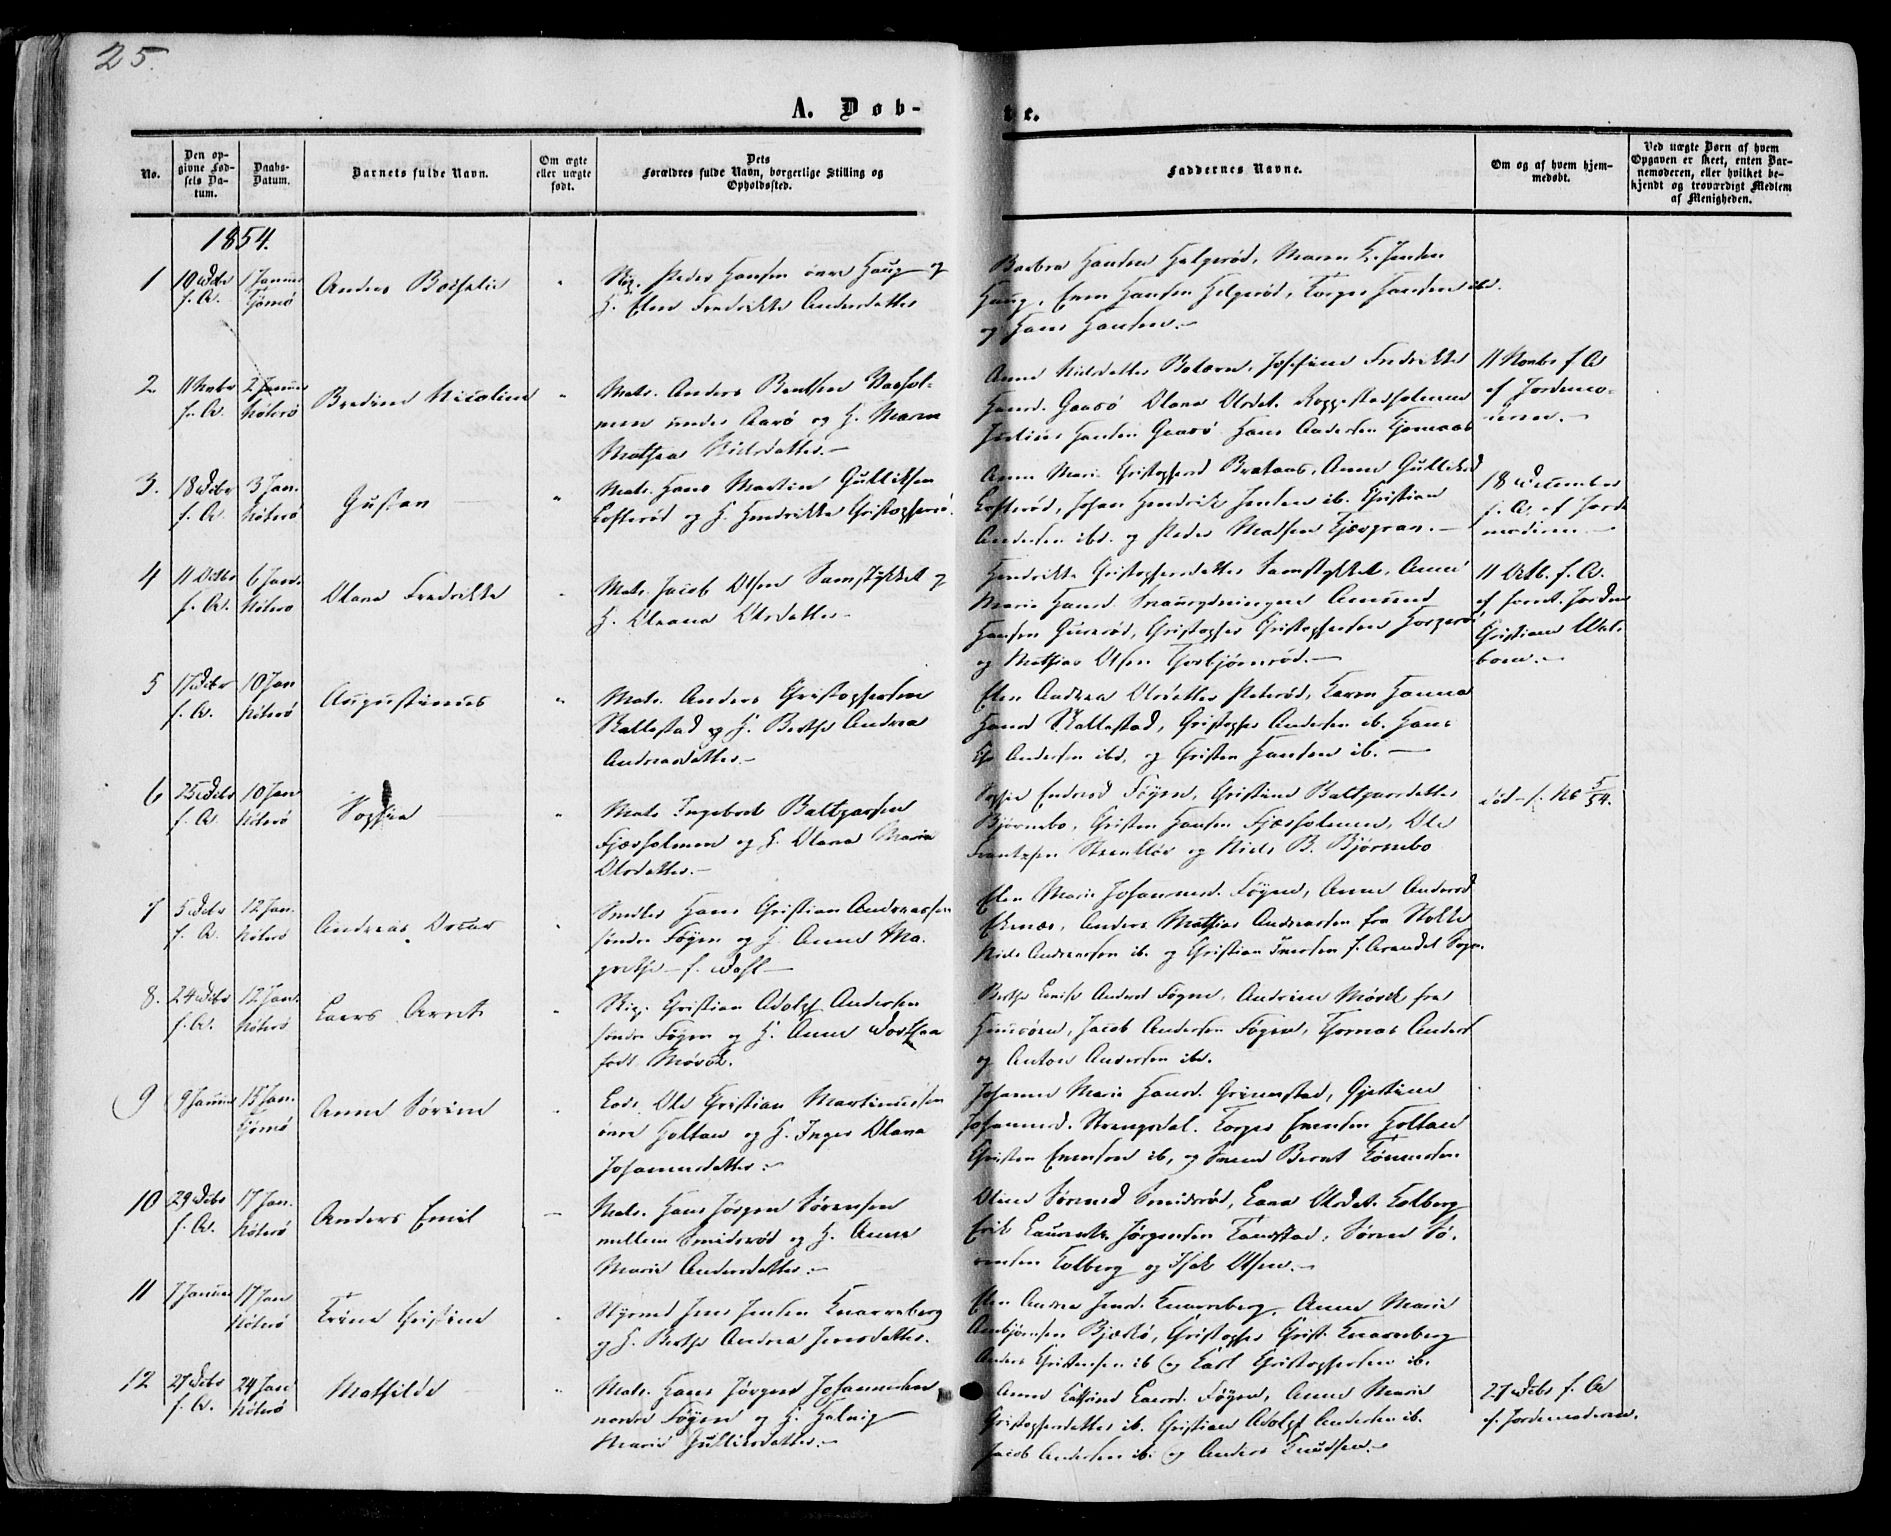 25.
A. Døb-
te.
No.
Den op-
givne Fød-
sels Da-
tum.
Daabs-
Datum.
Barnets fulde Navn.
Om ægte
eller uægte
født.
Dets
Forældres fulde Navn, borgerlige Stilling og
Opholdssted.
Faddernes Navne.
Om og af hvem hjem-
medøbt.
Ved uægte Børn af hvem
Opgaven er skeet, enten Bar-
nemoderen, eller hvilket be-
kjendt og troværdigt Medlem
af Menigheden.
1854.
1
19 Debr
f. A.
1 Januar
Tjømø
Anders
Peder Hansen øvre Haug og
H. Elen Fredrikke Andersdatter
Barbra Hansen Helgerød, Maren H. Jensen
Haug, Even Hansen Helgerød, Torger Jansen ibd.
og Hans Hansen.-
2.
11 Novbr
f. A.
2 Januar
Nøterø
Bredine Nicoline
"
Matr. Anders Bentsen Vashol-
men under Aarø og H. Maren
Mathea Nielsdatter.-
Anne Nielsdatter Josefine Fredrikke
Hansd. Gaasø Olava Olsdat.
Julius Hansen Gaasø Hans Andersen
11 Novbr f. A
af Jordemo-
deren.-
3.
18 Debr
f. A.
3 Jan.
Nøterø
Gustav
"
Matr. Hans Martin Gulliksen
Lofterød og H. Hendrikke Christophersd.
Anne Marie Christophersd Brataas, Anne Gulliksd
Lofterød, Johan Hendrik Jensen ib. Christian
Andersen ibd. og Peder Madsen
18 December
f. A. af Jorde
moderen
4
11 Octbr
f. A.
6 Jan.
Nøterø
Olava Fredrikke
Matr. Jacob Olsen Samstykket og
H. Oleana Olsdatter-
Hendrikke Christophersdatter Samstykket, Anne
Marie Hansd. Amund
Hansen Christopher Christophersen
og Mathias Olsen Torbjørnrød.-
11 Octb. f. A.
af Jordem
Christiane Wal-
boen.-
5
17 Debr
f. A.
10 Jan
Nøterø
Augustinus
"
Matr. Anders Christophersen
Skallestad og H. Berthe Andrea
Andreasdatter.-
Elen Andrea Olsdatter Karen Hanna
Hansd Skallestad, Christopher Andersen ib. Hans
Andersen ibd, og Christen Hansen ib.-
6
25 Debr
f. A.
10 Jan
Nøterø
Sophia
Matr Ingebret Baltzersen
Fjærholmen og H. Olava Maria
Olsdatter.-
Sophie Endresd Føyen, Christine Baltzersdatter
Bjørnebo, Christen Hansen Fjærholmen, Ole
Frantzsen og Niels B. Bjørnebo
død - f. No 5/54.
7
5 Debr
f. A.
12 Jan.
Nøterø
Andreas Oscar
Smeder Hans Christian Andreassen
søndre Føyen og H Anne Ma-
grethe - f. Dahl-
Elen Marie Johannesd. Føyen, Anne Andersd
Ekenæs, Anders Mathias Andreassen fra Stokke
Niels Andreassen ib. og Christian Iversen f. Arendal Sogn.
8.
24 Debr
f. A.
12 Jan.
Nøterø
Laers Arnt
Christian Adolph Andersen
søndre Føyen og H. Anne Dorthea
født Mørch.
Berthe Lovise Andersd Føyen, Andrine Mørch fra
Jacob Andersen Føyen, Thomas Anders
og Anton Andersen ibd.
9
9 Januar
15 Jan.
Tjømø
Anne Sørine
Lods Ole Christian Martinussen
øvre Holtan og H. Inger Olava
Johannesdatter.-
Johanne Marie Hansd. Grimestad, Gjestine
Johannesd. Strengsdal. Torger Evensen Holtan
Christen Evensen ib, og Svend Bernt Tønnesen
10
29 Debr
f. A.
17 Jan.
Nøterø
Anders Emil
Matr. Hans Jørgen Sørensen
mellem Smidsrød og H. Anne
Marie Andersdatter.-
Oline Sørensd Smidsrød, Lava Olsdat. Kolberg
Erik Laurentz Jørgensen Søren Sø-
rensen Kolberg og Isak Olsen.-
11
7 Januar
17 Jan
Nøterø
Trine Christine
Styrmd Jens Jensen Knarreberg
og H. Berthe Andrea Jensdatter.
Elen Andrea Jensd. Knarreberg, Anne Marie
Arnbjørnsen Bjerkø, Christopher Christ. Knarreberg
Anders Christensen ib og Carl Christophersen ib.
12
27 Debr
f. A.
24 Jan
Nøterø
Mathilde
"
Matr. Hans Jørgen Johannesen
nordre Føyen og H. Helvig
Marie Gulliksdatter.-
Anne Cathrine Laersd. Føyen, Anne Marie
Christophersdatter ib. Christian Adolph Andersen ib.
Jacob Andersen ib. og Anders Knudsen.-
27 Debr f. A
af Jordemoderen.